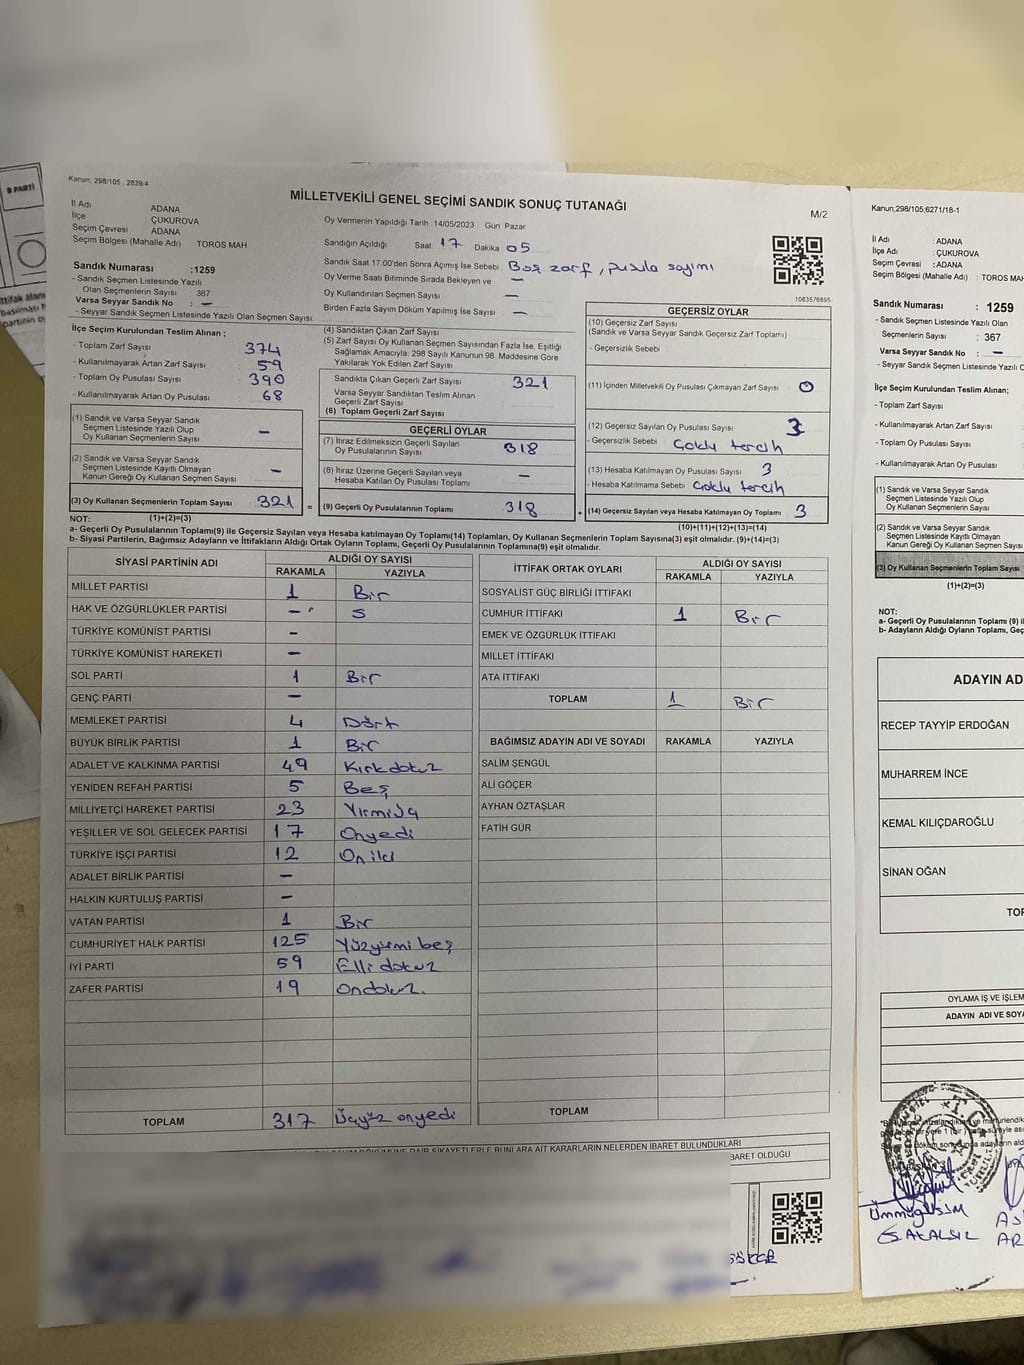 B PARTİ
Kanun, 298/105 , 2839/4
MİLLETVEKİLİ GENEL SEÇİMİ SANDIK SONUÇ TUTANAĞI
M/2
İl Adı ADANA
İlçe : ÇUKUROVA
Seçim Çevresi : ADANA
Seçim Bölgesi (Mahalle Adı) TOROS MAH
Oy Vermenin Yapıldığı Tarih :14/05/2023 Gün :Pazar
Sandığın Açıldığı Saat: 17 Dakika 05
Sandık Saat 17.00'den Sonra Açımış İse Sebebi: Boş zarf, pusula sayımı
Oy Verme Saati Bitiminde Sırada Bekleyen ve -
Oy Kullandırılan Seçmen Sayısı -
Birden Fazla Sayım Döküm Yapılmış İse Sayısı -
1083576895
Sandık Numarası :1259
- Sandık Seçmen Listesinde Yazılı
Olan Seçmenlerin Sayısı : 367
Varsa Seyyar Sandık No : -
- Seyyar Sandık Seçmen Listesinde Yazılı Olan Seçmen Sayısı:
İlçe Seçim Kurulundan Teslim Alınan ;
- Toplam Zarf Sayısı 374
- Kullanılmayarak Artan Zarf Sayısı 59
- Toplam Oy Pusulası Sayısı 390
- Kullanılmayarak Artan Oy Pusulası 68
(1) Sandık ve Varsa Seyyar Sandık
Seçmen Listesinde Yazılı Olup
Oy Kullanan Seçmenlerin Sayısı -
(2) Sandık ve Varsa Seyyar Sandık
Seçmen Listesinde Kayıtlı Olmayan
Kanun Gereği Oy Kullanan Seçmen Sayısı -
(3) Oy Kullanan Seçmenlerin Toplam Sayısı 321
(1)+(2)=(3)
(4) Sandıktan Çıkan Zarf Sayısı
(5) Zarf Sayısı Oy Kullanan Seçmen Sayısından Fazla İse, Eşitliği
Sağlamak Amacıyla; 298 Sayılı Kanunun 98. Maddesine Göre
Yakılarak Yok Edilen Zarf Sayısı
Sandıkta Çıkan Geçerli Zarf Sayısı 321
Varsa Seyyar Sandıktan Teslim Alınan
Geçerli Zarf Sayısı
(6) Toplam Geçerli Zarf Sayısı
GEÇERLİ OYLAR
(7) İtiraz Edilmeksizin Geçerli Sayılan
Oy Pusulalarının Sayısı 318
(8) İtiraz Üzerine Geçerli Sayılan veya
Hesaba Katılan Oy Pusulası Toplamı -
= (9) Geçerli Oy Pusulalarının Toplamı 318 +
GEÇERSİZ OYLAR
(10) Geçersiz Zarf Sayısı
(Sandık ve Varsa Seyyar Sandık Geçersiz Zarf Toplamı)
- Geçersizlik Sebebi
(11) İçinden Milletvekili Oy Pusulası Çıkmayan Zarf Sayısı 0
(12) Geçersiz Sayılan Oy Pusulası Sayısı 3
- Geçersizlik Sebebi Çoklu tercih
(13) Hesaba Katılmayan Oy Pusulası Sayısı 3
- Hesaba Katılmama Sebebi Çoklu tercih
(14) Geçersiz Sayılan veya Hesaba Katılmayan Oy Toplamı 3
(10)+(11)+(12)+(13)=(14)
NOT:
a- Geçerli Oy Pusulalarının Toplamı(9) ile Geçersiz Sayılan veya Hesaba Katılmayan Oy Toplamı(14) Toplamları, Oy Kullanan Seçmenlerin Toplam Sayısına(3) eşit olmalıdır. (9)+(14)=(3)
b- Siyasi Partilerin, Bağımsız Adayların ve İttifakların Aldığı Ortak Oyların Toplamı, Geçerli Oy Pusulalarının Toplamına(9) eşit olmalıdır.
SİYASİ PARTİNİN ADI
ALDIĞI OY SAYISI
RAKAMLA YAZIYLA
MİLLET PARTİSİ 1 Bir
HAK VE ÖZGÜRLÜKLER PARTİSİ - s
TÜRKİYE KOMÜNİST PARTİSİ -
TÜRKİYE KOMÜNİST HAREKETİ -
SOL PARTİ 1 Bir
GENÇ PARTİ -
MEMLEKET PARTİSİ 4 Dört
BÜYÜK BİRLİK PARTİSİ 1 Bir
ADALET VE KALKINMA PARTİSİ 49 Kırkdokuz
YENİDEN REFAH PARTİSİ 5 Beş
MİLLİYETÇİ HAREKET PARTİSİ 23 Yirmiüç
YEŞİLLER VE SOL GELECEK PARTİSİ 17 Onyedi
TÜRKİYE İŞÇİ PARTİSİ 12 Oniki
ADALET BİRLİK PARTİSİ -
HALKIN KURTULUŞ PARTİSİ -
VATAN PARTİSİ 1 Bir
CUMHURİYET HALK PARTİSİ 125 Yüzyirmi beş
İYİ PARTİ 59 Elli dokuz
ZAFER PARTİSİ 19 Ondokuz.
TOPLAM 317 Üçyüz onyedi
İTTİFAK ORTAK OYLARI
ALDIĞI OY SAYISI
RAKAMLA YAZIYLA
SOSYALİST GÜÇ BİRLİĞİ İTTİFAKI
CUMHUR İTTİFAKI 1 Bir
EMEK VE ÖZGÜRLÜK İTTİFAKI
MİLLET İTTİFAKI
ATA İTTİFAKI
TOPLAM 1 Bir
BAĞIMSIZ ADAYIN ADI VE SOYADI RAKAMLA YAZIYLA
SALİM ŞENGÜL
ALİ GÖÇER
AYHAN ÖZTAŞLAR
FATİH GÜR
TOPLAM
ŞİKAYETLERLE BUNLARA AİT KARARLARIN NELERDEN İBARET BULUNDUKLARI
BARET OLDUĞU
Kanun,298/105,6271/18-1
İl Adı : ADANA
İlçe Adı : ÇUKUROVA
Seçim Çevresi : ADANA
Seçim Bölgesi (Mahalle Adı) : TOROS MAH
Sandık Numarası : 1259
- Sandık Seçmen Listesinde Yazılı Olan
Seçmenlerin Sayısı : 367
Varsa Seyyar Sandık No : -
- Seyyar Sandık Seçmen Listesinde Yazılı
İlçe Seçim Kurulundan Teslim Alınan;
- Toplam Zarf Sayısı
- Kullanılmayarak Artan Zarf Sayısı
- Toplam Oy Pusulası Sayısı
- Kullanılmayarak Artan Oy Pusulası
(1) Sandık ve Varsa Seyyar Sandık
Seçmen Listesinde Yazılı Olup
Oy Kullanan Seçmenlerin Sayısı
(2) Sandık ve Varsa Seyyar Sandık
Seçmen Listesinde Kayıtlı Olmayan
Kanun Gereği Oy Kullanan Seçmen Sayısı
(3) Oy Kullanan Seçmenlerin Toplam Sayısı
(1)+(2)=(3)
NOT:
a- Geçerli Oy Pusulalarının Toplamı (9)
b- Adayların Aldığı Oyların Toplamı,
ADAYIN AD
RECEP TAYYİP ERDOĞAN
MUHARREM İNCE
KEMAL KILIÇDAROĞLU
SİNAN OĞAN
OYLAMA İŞ VE İŞLEM
ADAYIN ADI VE SOYA
T.C.
Ümmügülsüm
SAKALSIZ